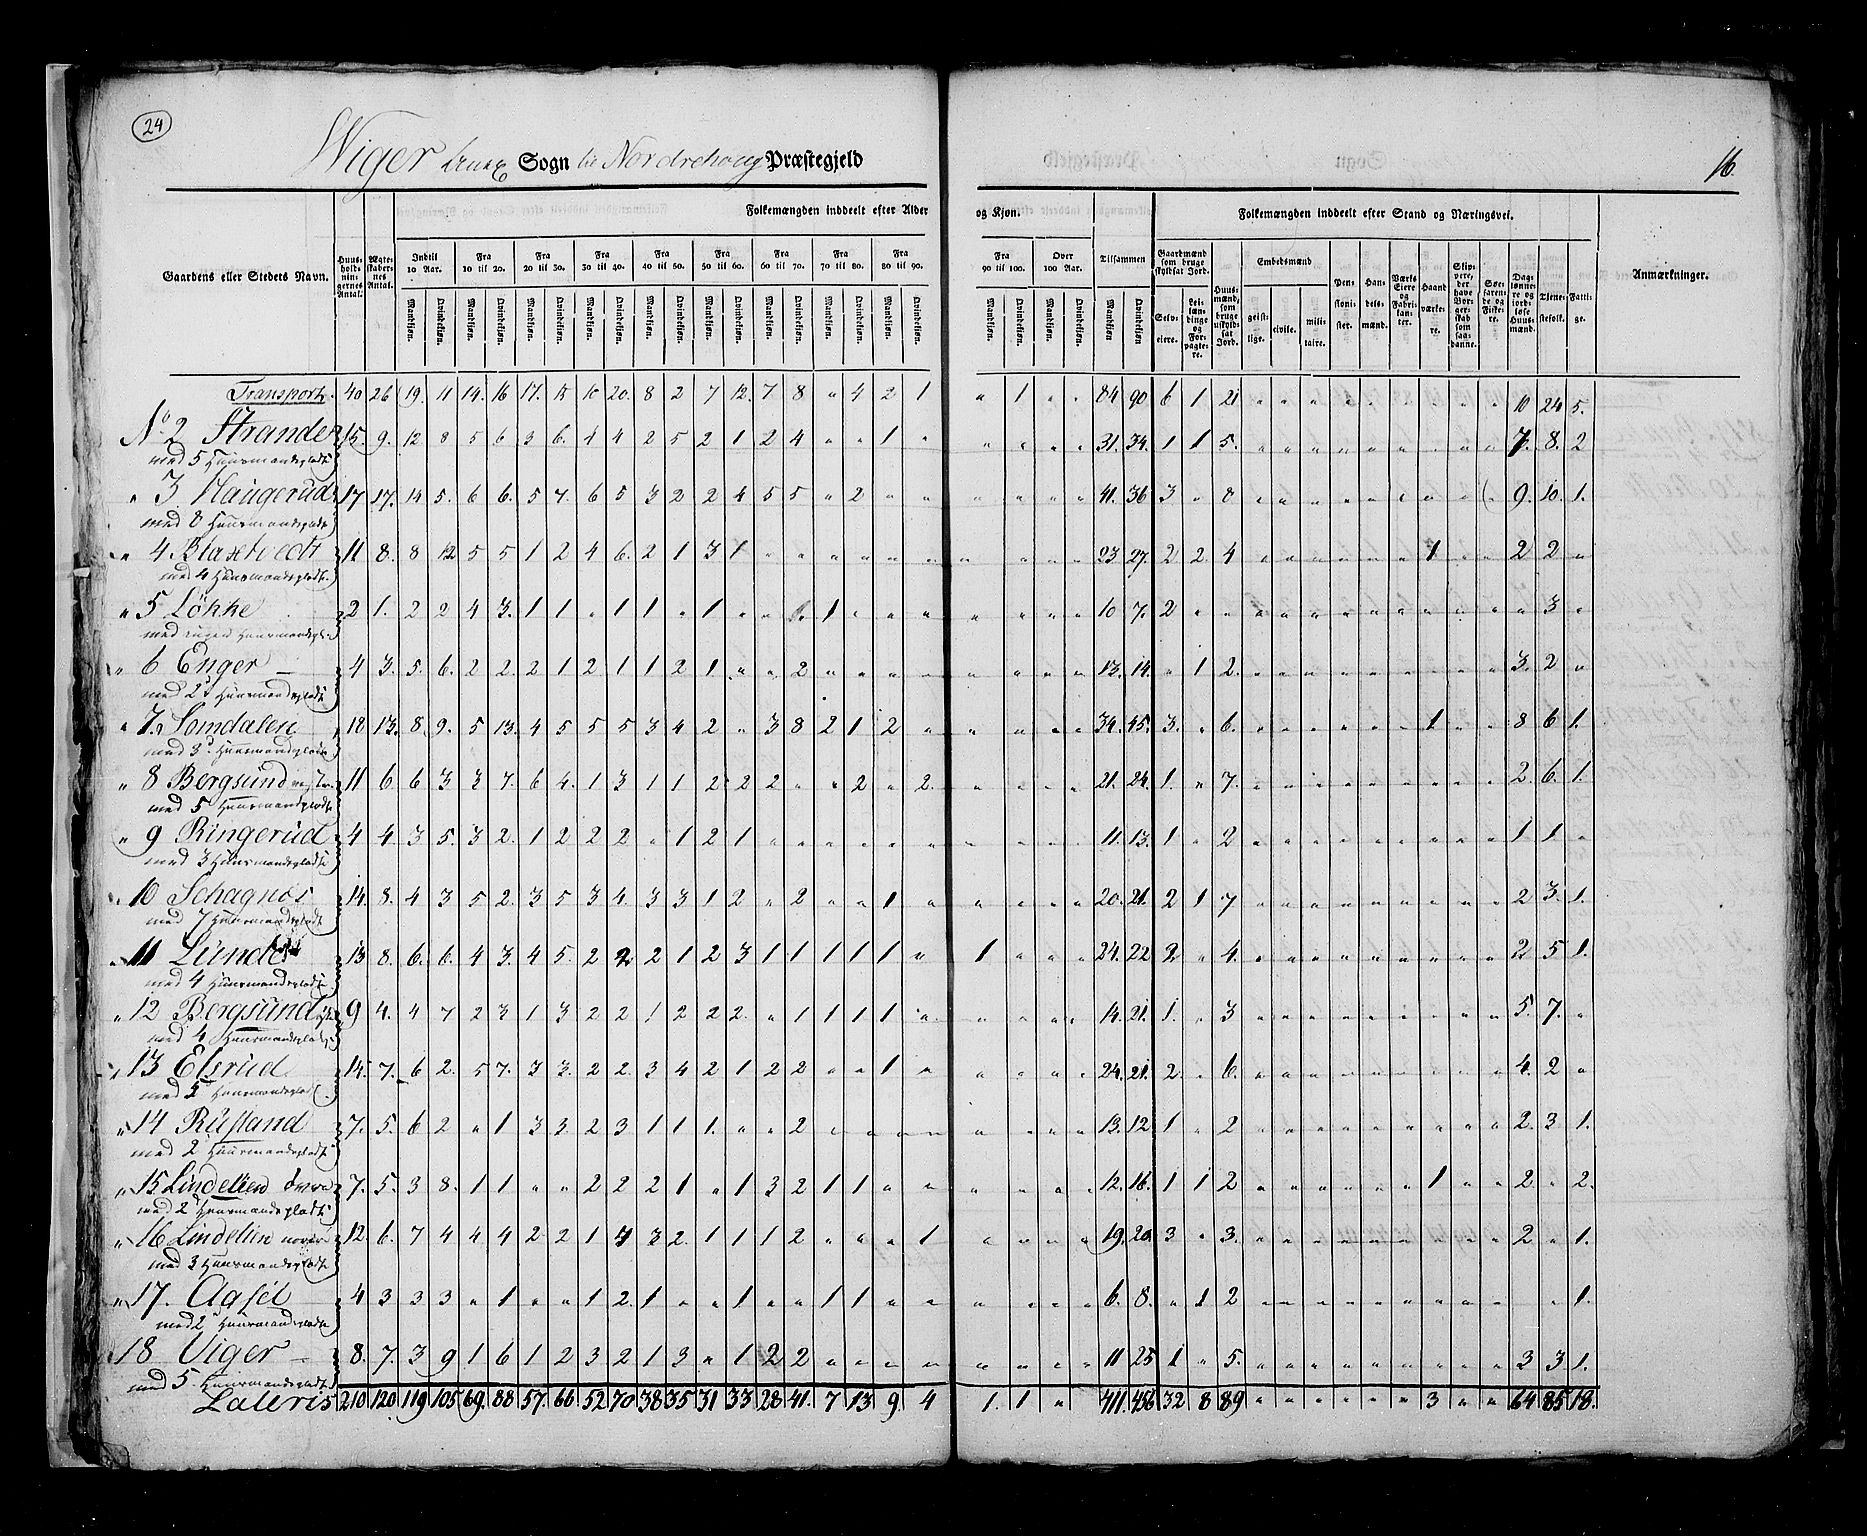 24
Wiger Sogn til Nordrehoug Præstegjeld
16.
Folkemængden inddeelt efter Alder og Kjøn.
Folkemængden inddeelt efter Stand og Næringsvei.
Gaardens eller Stedets Navn. Huusholdningernes Antal. Ægteskabernes Antal. Indtil 10 Aar. Fra 10 til 20. Fra 20 til 30. Fra 30 til 40. Fra 40 til 50. Fra 50 til 60. Fra 60 til 70. Fra 70 til 80. Fra 80 til 90. Fra 90 til 100. Over 100 Aar. Tilsammen Gaardmænd som bruge skyldsat Jord. Huusmænd, som bruge uskyldsat Jord. Embedsmænd Pensionister. Handelsmænd. Værks Eiere og Fabrikanter. Haandværkere. Skippere, der have Borgerskab som saadanne. Søefarende og Fiskere. Daglønnere og jordløse Huusmænd. Tjenestefolk. Fattige. Anmærkninger.
Mandkjøn. Qvindekjøn. Mandkjøn. Qvindekjøn. Mandkjøn. Qvindekjøn. Mandkjøn. Qvindekjøn. Mandkjøn. Qvindekjøn. Mandkjøn. Qvindekjøn. Mandkjøn. Qvindekjøn. Mandkjøn. Qvindekjøn. Mandkjøn. Qvindekjøn. Mandkjøn. Qvindekjøn. Mandkjøn. Qvindekjøn. Mandkjøn. Qvindekjøn. Selveiere. Leilændinge og Forpagtere. geistlige. civile. militaire.
Transport. 40 26 19. 11 14. 16 17. 15 10 20. 8 2 7 12. 7 8 " 4 2 1 " 1 " " 84 90 6 1 21 " " " " " " " " " 10 24 5.
No 2 Strande 15. 9. 12 8 5 6 3 6. 4 4 2 5 2 1 2 4 " " 1 " " " " " 31. 34. 1 1 5. " " " " " " " " " 7. 8. 2
med 5 Huusmandspladse
" 3 Haugerud 17 17. 14 5. 6 6. 5 7. 6 5 3 2 2 4 5 5 " 2 " " " " " " 41. 36 3 " 8 " " " " " " " " " 9. 10. 1.
med 8 Huusmandspladse
" 4 Blaxetvedt 11 8. 8 12 5 5 1 2 4 6. 2 1 3 1 " " " " " " " " " " 23. 27. 2 2. 4 " " " " " " 1 " " 2 2 "
med 4 Huusmandspladse
" 5 Løkke 2 1. 2 2 4 3. 1 1 " 1 1 " 1 " " 1. 1 " " " " " " " 10 7. 2 " " " " " " " " " " " " 3 "
med ingen Huusmandspl.
" 6 Enger 4 3. 5. 6. 2 2. 2 1 2 1 1 2 1 " " 2 " " " " " " " " 13. 14. " 1 2. " " " " " " " " " 3. 2 "
med 2 Huusmandspladse
" 7. Somdalen 18 13. 8 9. 5 13. 4 5 5 5 3 4 2 " 3 8 2 1 2 " " " " " 34. 45. 3. " 6. " " " " " " 1 " " 8 6 1.
med 3 Huusmandspladse
" 8 Bergsund 11 6 6 3 3 7. 6 4. 1 3 1 1 2 2 2 " " 2 " 2. " " " " 21. 24. 1. " 7. " " " " " " " " " 2. 6. 1.
med 5 Huusmandspladse
" 9 Ringerud 4 4. 3 5. 3 2. 1 2 2 2 " 1 2 1 " " " " " " " " " " 11. 13. 1 " 2 " " " " " " " " " 1 1 "
med 3 Huusmandspladse
" 10 Schagnæs 14. 8. 4 3 5 2. 3 5 3 4. 3 3 1 2 " 2 " " 1 " " " " " 20. 21. 2 1 7 " " " " " " " " " 2 3. 1.
med 7 Huusmandspladse
" 11 Lunde 13 8. 6. 6. 4 3. 4 5. 2 2 2 1 2 3 1 1 1 1 1 " 1 " " " 24. 22 2. " 4. " " " " " " " " " 2 5 1.
med 4 Huusmandspladse
" 12 Bergsund 9 4. 4 7 2 3 1 3 2 2 1 2 2 2. " 1 1 1 1 " " " " " 14. 21. 1. " 3 " " " " " " " " " 5. 7. "
med 4 Huusmandspladse
" 13 Elsrud 14. 7. 6 2. 5 7. 3 3. 2 2. 3 4 2 1 2 2 " " 1 " " " " " 24. 21. 2. " 6. " " " " " " " " " 4. 2 "
med 5 Huusmandspladse
" 14 Rustand 7. 5. 6 2. " 1 3 3. 2 3 1 1 1. " " 2 " " " " " " " " 13. 12 1 " 2 " " " " " " " " " 2. 3 1.
med 2 Huusmandspladse
" 15 Lindelien 7. 5. 3 8. 1 1 " " 2 2 2 1 " 1 3 2 1 1 " " " " " " 12. 16. 1 1 2 " " " " " " 1 " " 2 " 2.
med 2 Huusmandspladse
" 16 Lindelien 12. 6. 7 4 4 4 2 2 1 4 3 2. 1 1 1 2 " " " 1 " " " " 19. 20. 3 " 3. " " " " " " " " " 2 " 1.
med 3 Huusmandspladse
" 17. Aasel 4 3 3 3 " 1 " " 1 2. 1 " " 1 " " 1 1 " " " " " " 6. 8. " 1 2 " " " " " " " " " 1.
med 2 Huusmandspladse
" 18 Viger 8. 7. 3 9 1 6 1 2 3 2 1 3 " 1 2 2 " " " " " " " " 11 25 1 " 5. " " " " " " " " " 3 3 1.
med 5 Huusmandspladse
Lateris 210 120 119 105 69. 88 57. 66 52 70 38 35 31 33 28 41. 7 13 9. 4 1. 1 " 411. 456 32 8 89 " " " " " " 3 " " 64 85 18.